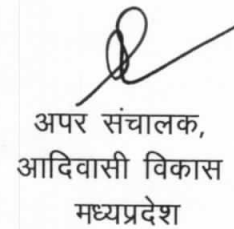 अपर संचालक,
आदिवासी विकास
मध्यप्रदेश